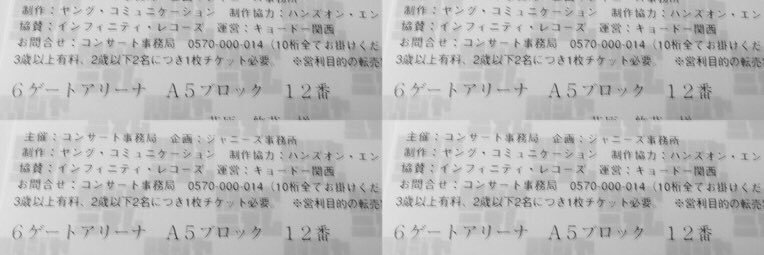 制作：ヤング・コミュニケーション 制作協力：ハンズオン・エン
協賛：インフィニティ・レコーズ 運営：キョードー関西
お問合せ：コンサート事務局 0570-000-014（10桁全てお掛けくだ
3歳以上有料、2歳以下2名につき1枚チケット必要 ※営利目的の転売
6ゲートアリーナ A5ブロック 12番
制作：ヤング・コミュニケーション 制作協力：ハンズオン・エン
協賛：インフィニティ・レコーズ 運営：キョードー関西
お問合せ：コンサート事務局 0570-000-014（10桁全てお掛けくだ
3歳以上有料、2歳以下2名につき1枚チケット必要 ※営利目的の転売
6ゲートアリーナ A5ブロック 12番
主催：コンサート事務局 企画：ジャニーズ事務所
制作：ヤング・コミュニケーション 制作協力：ハンズオン・エン
協賛：インフィニティ・レコーズ 運営：キョードー関西
お問合せ：コンサート事務局 0570-000-014（10桁全てお掛けくだ
3歳以上有料、2歳以下2名につき1枚チケット必要 ※営利目的の転売
6ゲートアリーナ A5ブロック 12番
主催：コンサート事務局 企画：ジャニーズ事務所
制作：ヤング・コミュニケーション 制作協力：ハンズオン・エン
協賛：インフィニティ・レコーズ 運営：キョードー関西
お問合せ：コンサート事務局 0570-000-014（10桁全てお掛けくだ
3歳以上有料、2歳以下2名につき1枚チケット必要 ※営利目的の転売
6ゲートアリーナ A5ブロック 12番